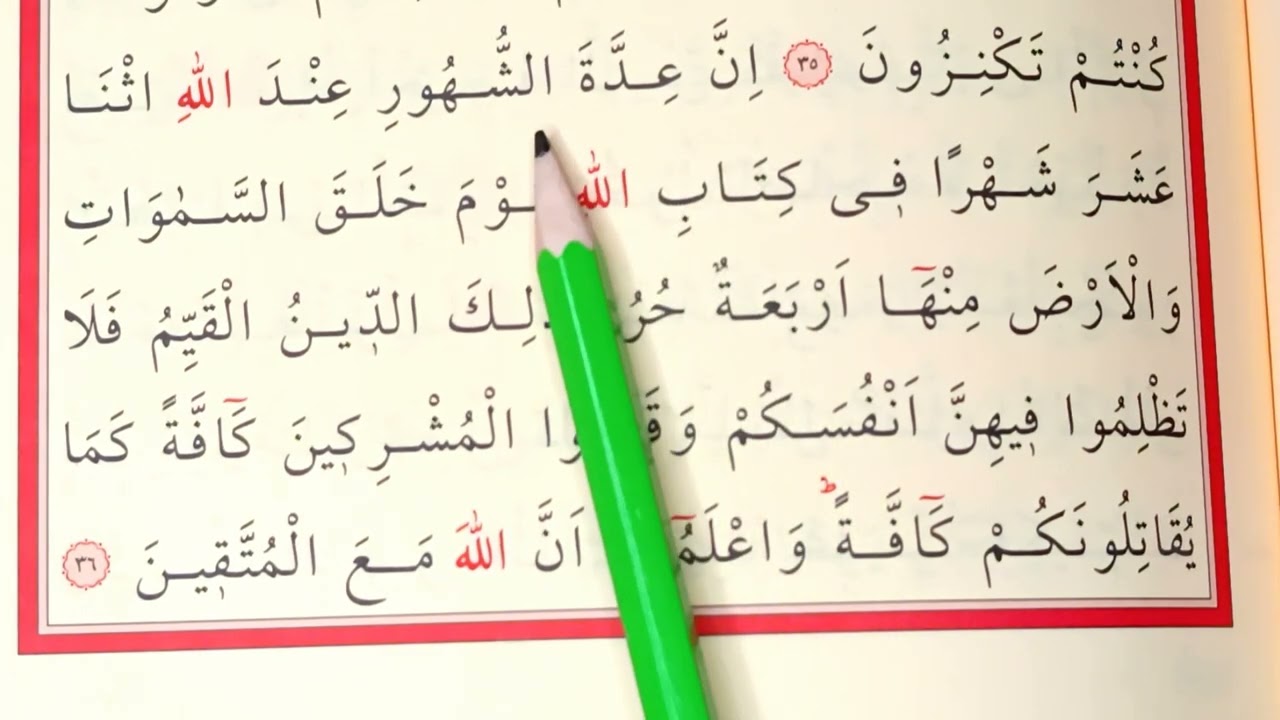 كُنْتُمْ تَكْنِزُونَ ﴿٣٥﴾ اِنَّ عِدَّةَ الشُّهُورِ عِنْدَ اللّٰهِ اثْنَا
عَشَرَ شَهْرًا فٖى كِتَابِ اللّٰهِ خَلَقَ السَّمٰوَاتِ
وَالْاَرْضَ مِنْهَٓا اَرْبَعَةٌ الدّٖينُ الْقَيِّمُ فَلَا
تَظْلِمُوا فٖيهِنَّ اَنْفُسَكُمْ الْمُشْرِكٖينَ كَٓافَّةً كَمَا
يُقَاتِلُونَكُمْ كَٓافَّةًؕ اَنَّ اللّٰهَ مَعَ الْمُتَّقٖينَ ﴿٣٦﴾